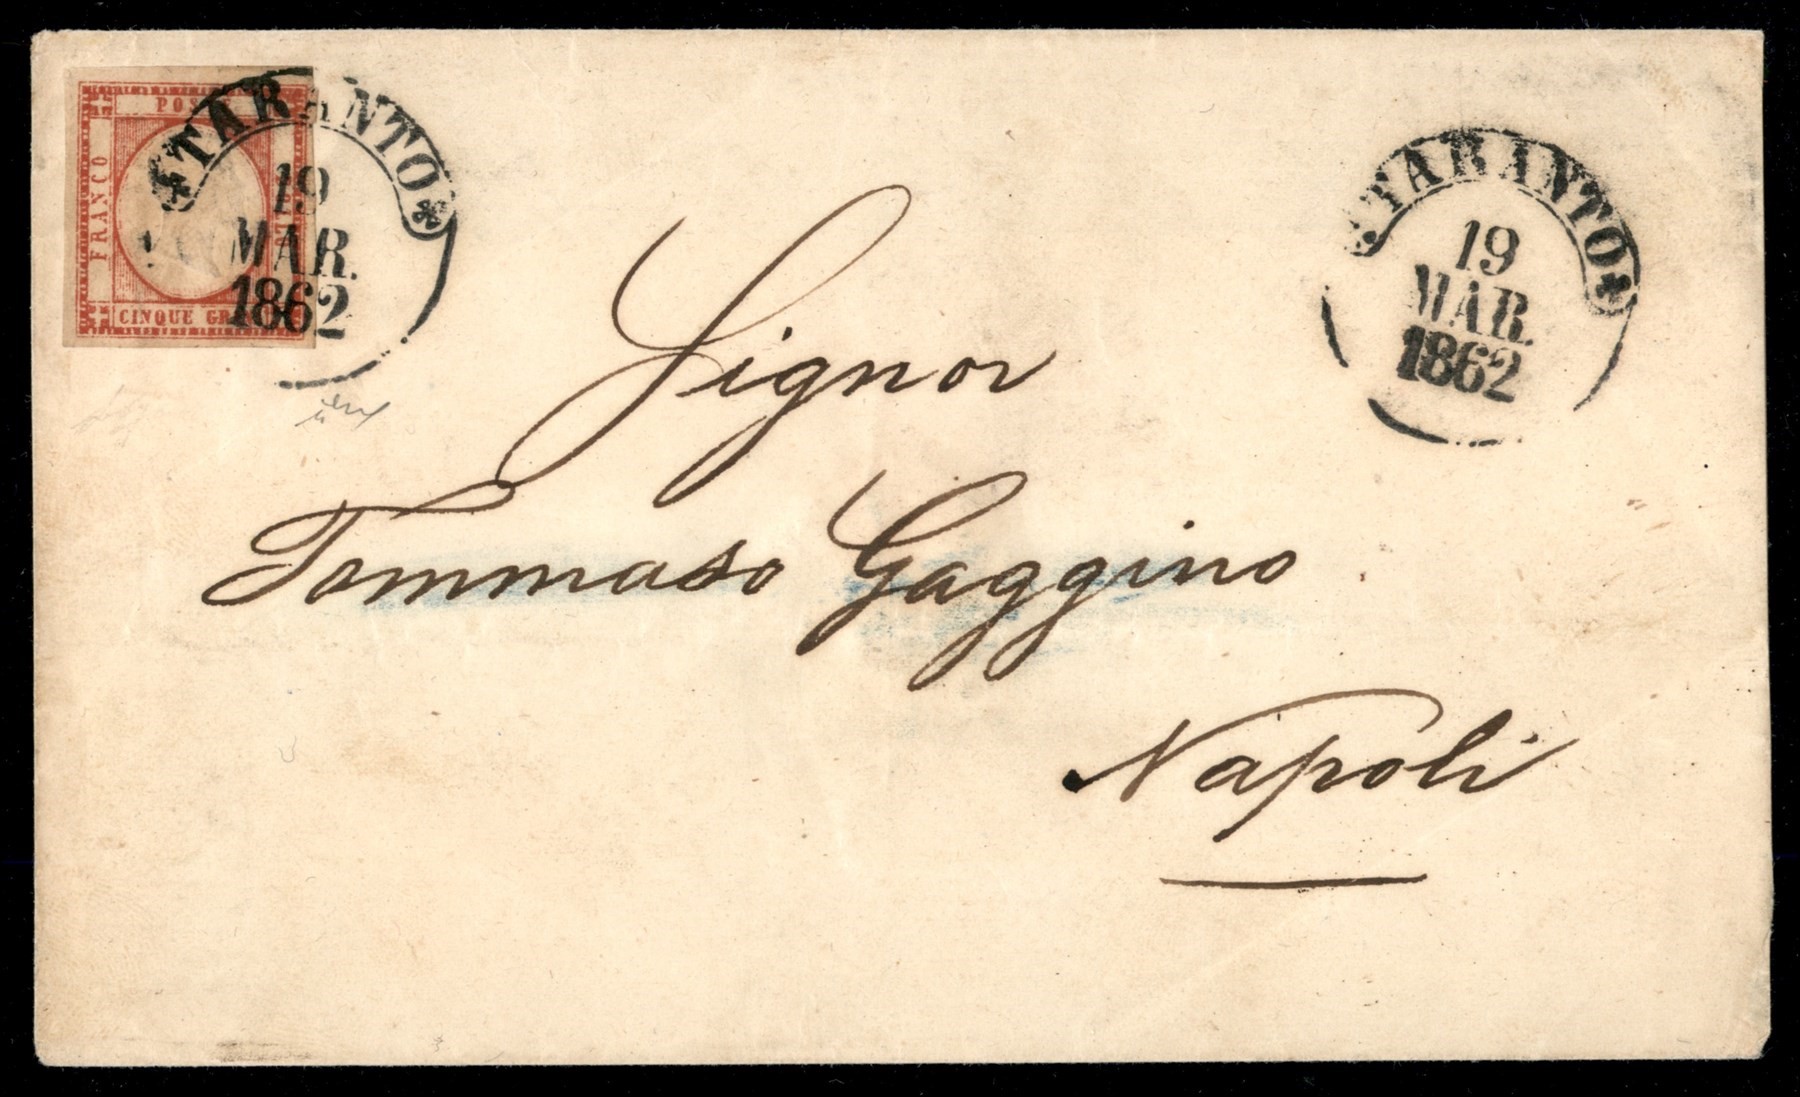 POS
FRANCO
CINQUE GR
TARANTO
19
MAR.
1862
TARANTO
19
MAR.
1862
Signor
Tommaso Gaggino
Napoli